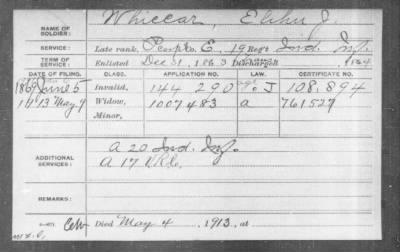 NAME OF SOLDIER: Whiccar, Elihu J.
SERVICE: Late rank, Co. E, 19 Reg't Ind. Inf.
TERM OF SERVICE: Enlisted Dec 31, 1863
DATE OF FILING. CLASS. APPLICATION NO. LAW. CERTIFICATE NO.
1869 June 5 Invalid, 144 290 J 108.894
1913 May 9 Widow, 1007483 a 761527
Minor,
ADDITIONAL SERVICES: A 20 Ind. Inf.
A 17 V.R.C.
REMARKS:
Died May 4, 1913, at